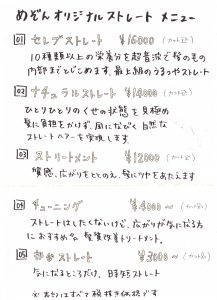 めぞん オリジナル ストレート メニュー
01 セレブ ストレート ¥16000 (カット込)
10種類以上の栄養分を超音波で髪のもの
内部までとじこめます。最上級のうるつやストレート
02 ナチュラル ストレート ¥14000 (カット込)
ひとりひとりのくせの状態を見極め
髪に負担をかけず、風になびく自然な
ストレートヘアーを実現します
03 ストリートメント ¥12000 (カット込)
質感、広がりをととのえ、髪にツヤをあたえます
04 チューニング ¥4000~ (カット込)
ストレートはしたくないけど、広がりが気になる方
におすすめな 髪質改善トリートメント。
05 部分ストレート ¥3000~ (カット込)
気になるところだけ、時短ストレート
※お代はすべて税抜き価格です